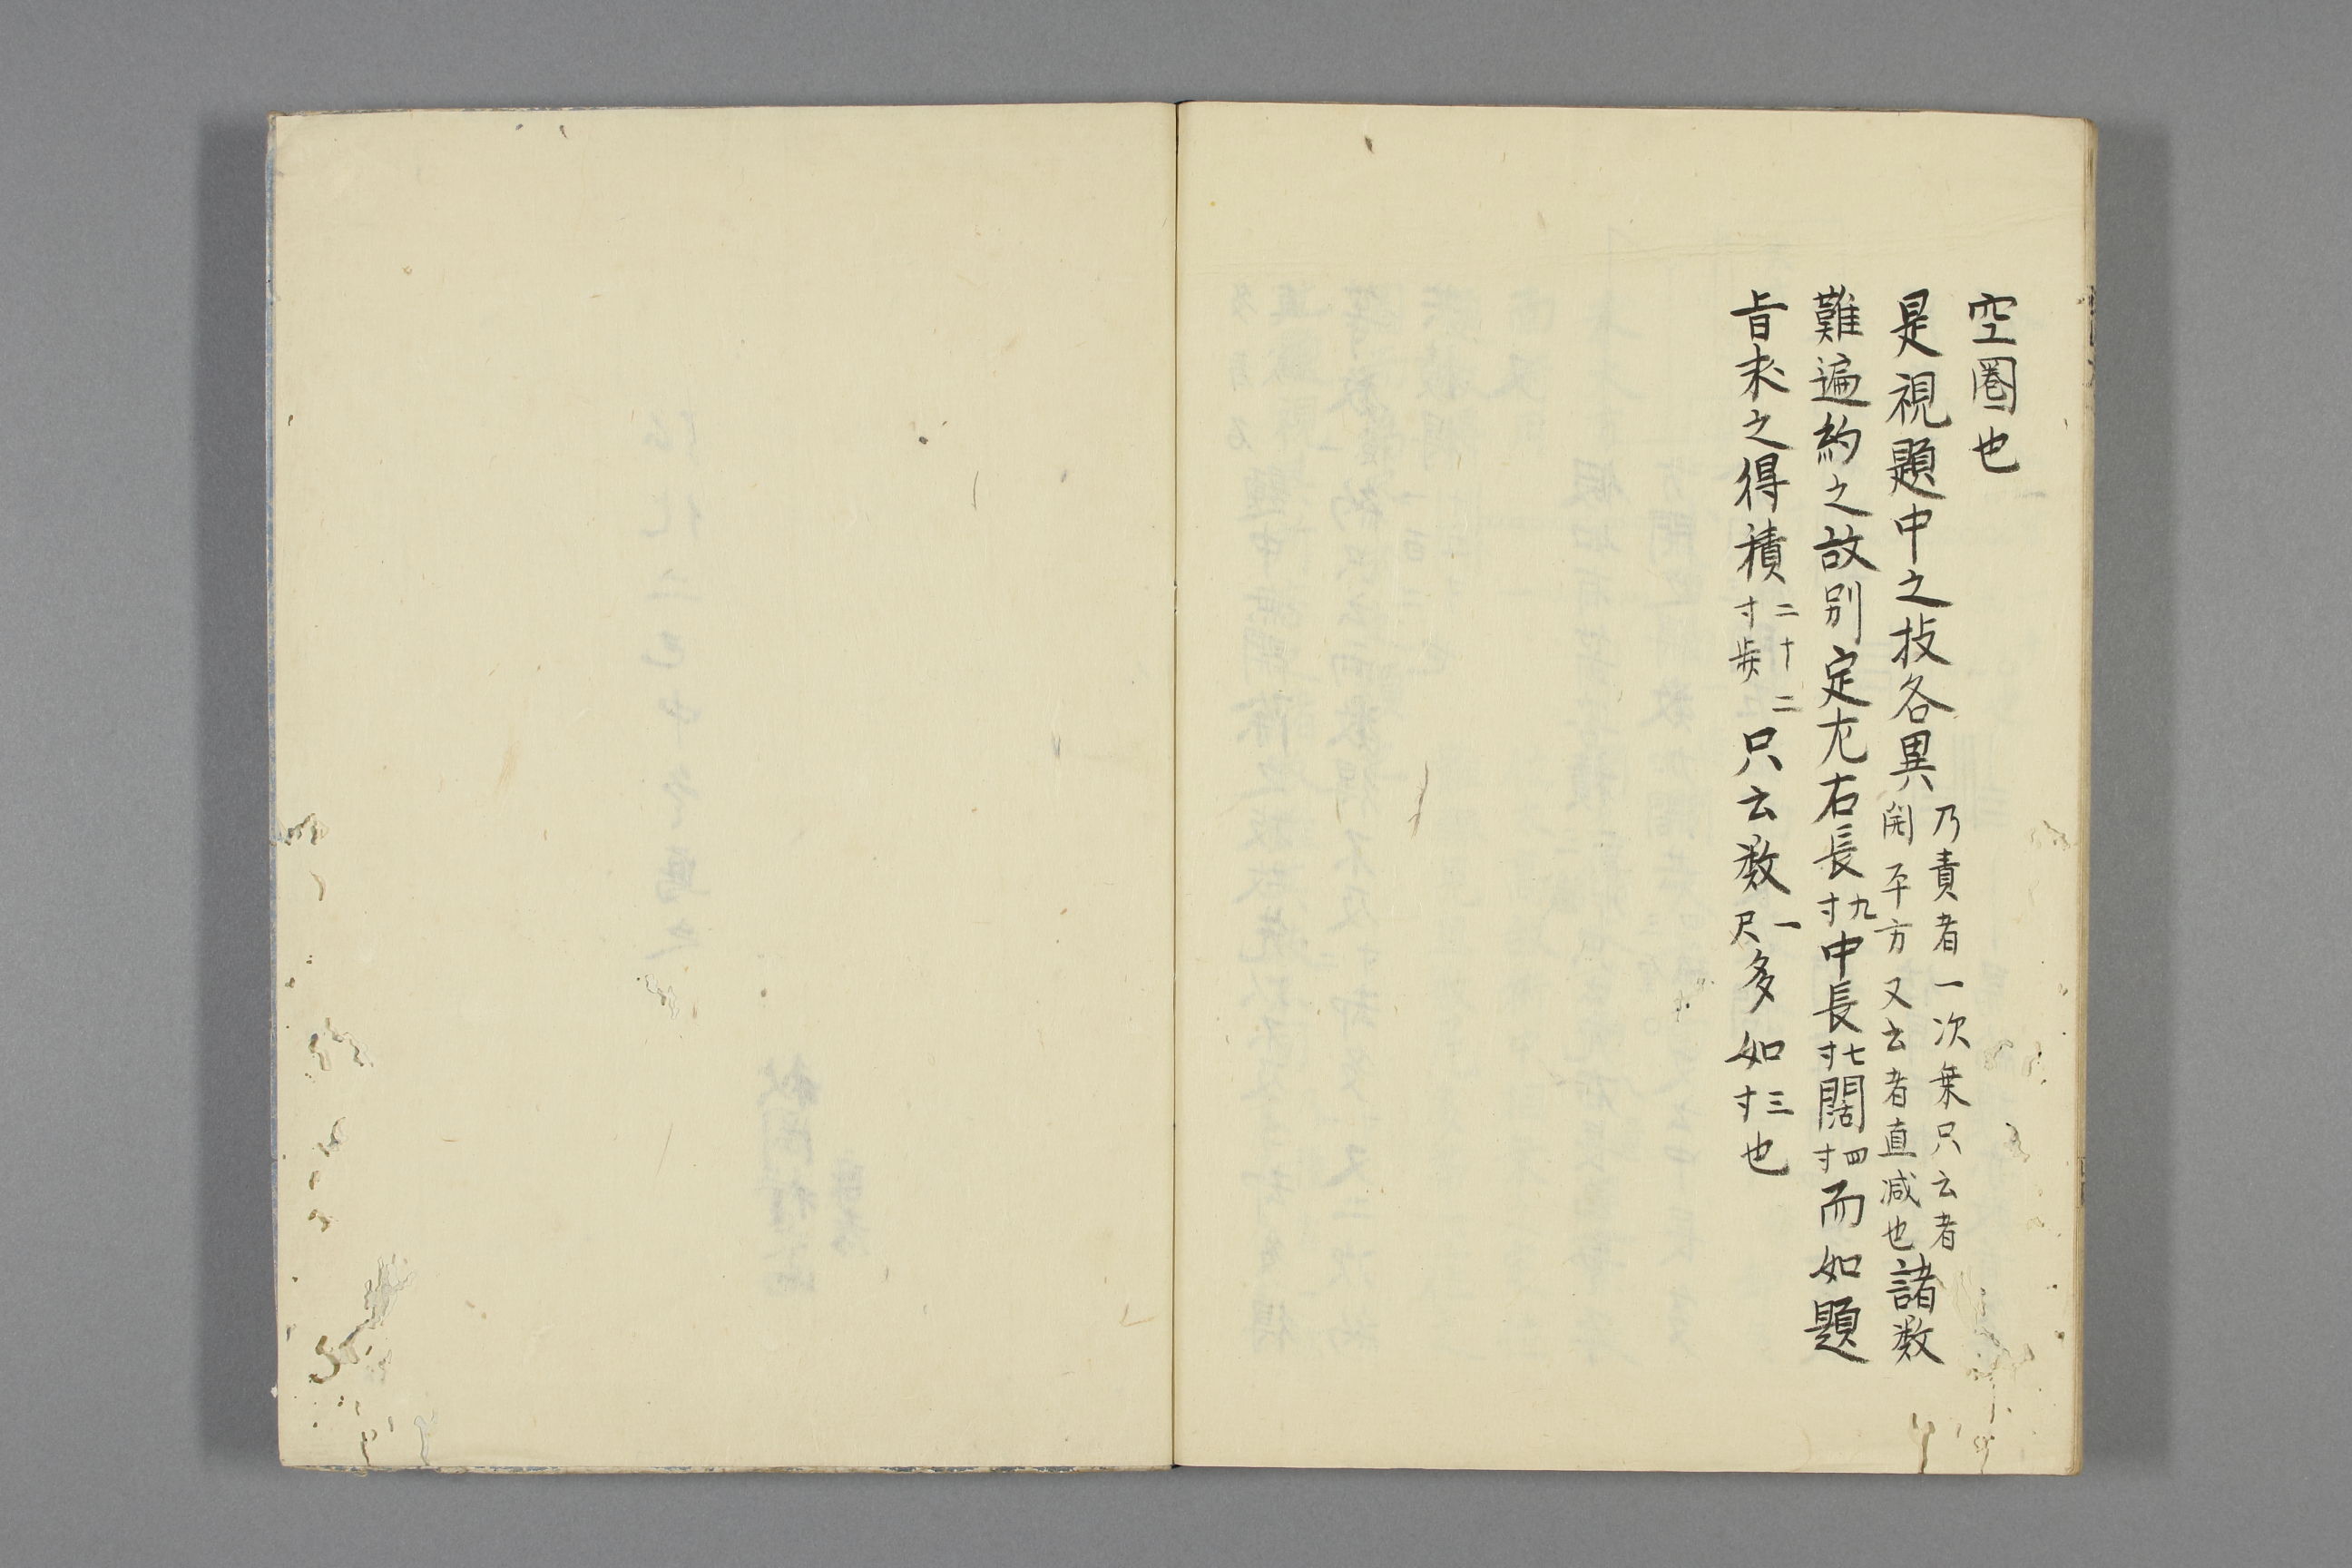 空圏也
是視題中之技各異乃責者一次乗只云者開平方又云者直减也諸数
難遍約之故別定左右長九寸中長七寸闊四寸而如題
旨求之得積二十二寸歩只云数一尺多如三寸也